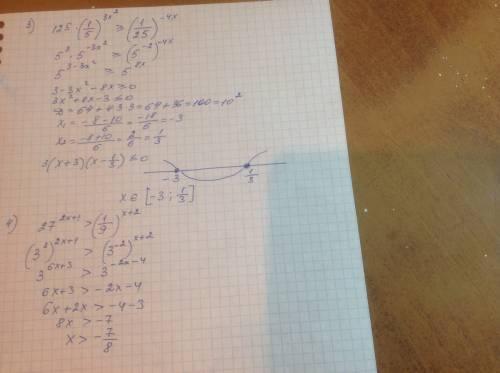 3) 125 · (1/5)^{3x²} ≥ (1/25)^{-4x}
5³ · 5^{-3x²} ≥ (5^{-2})^{-4x}
5^{3-3x²} ≥ 5^{8x}
3-3x²-8x≥0
3x²+8x-3≤0
D=64+4·3·3=64+36=100=10²
x₁=(-8-10)/6=-18/6=-3
x₂=(-8+10)/6=2/6=1/3
3(x+3)(x-1/3)≤0
-3 1/3
x∈[-3; 1/3]
4) 27^{2x+1} > (1/9)^{x+2}
(3³)^{2x+1} > (3^{-2})^{x+2}
3^{6x+3} > 3^{-2x-4}
6x+3>-2x-4
6x+2x>-4-3
8x>-7
x>-7/8